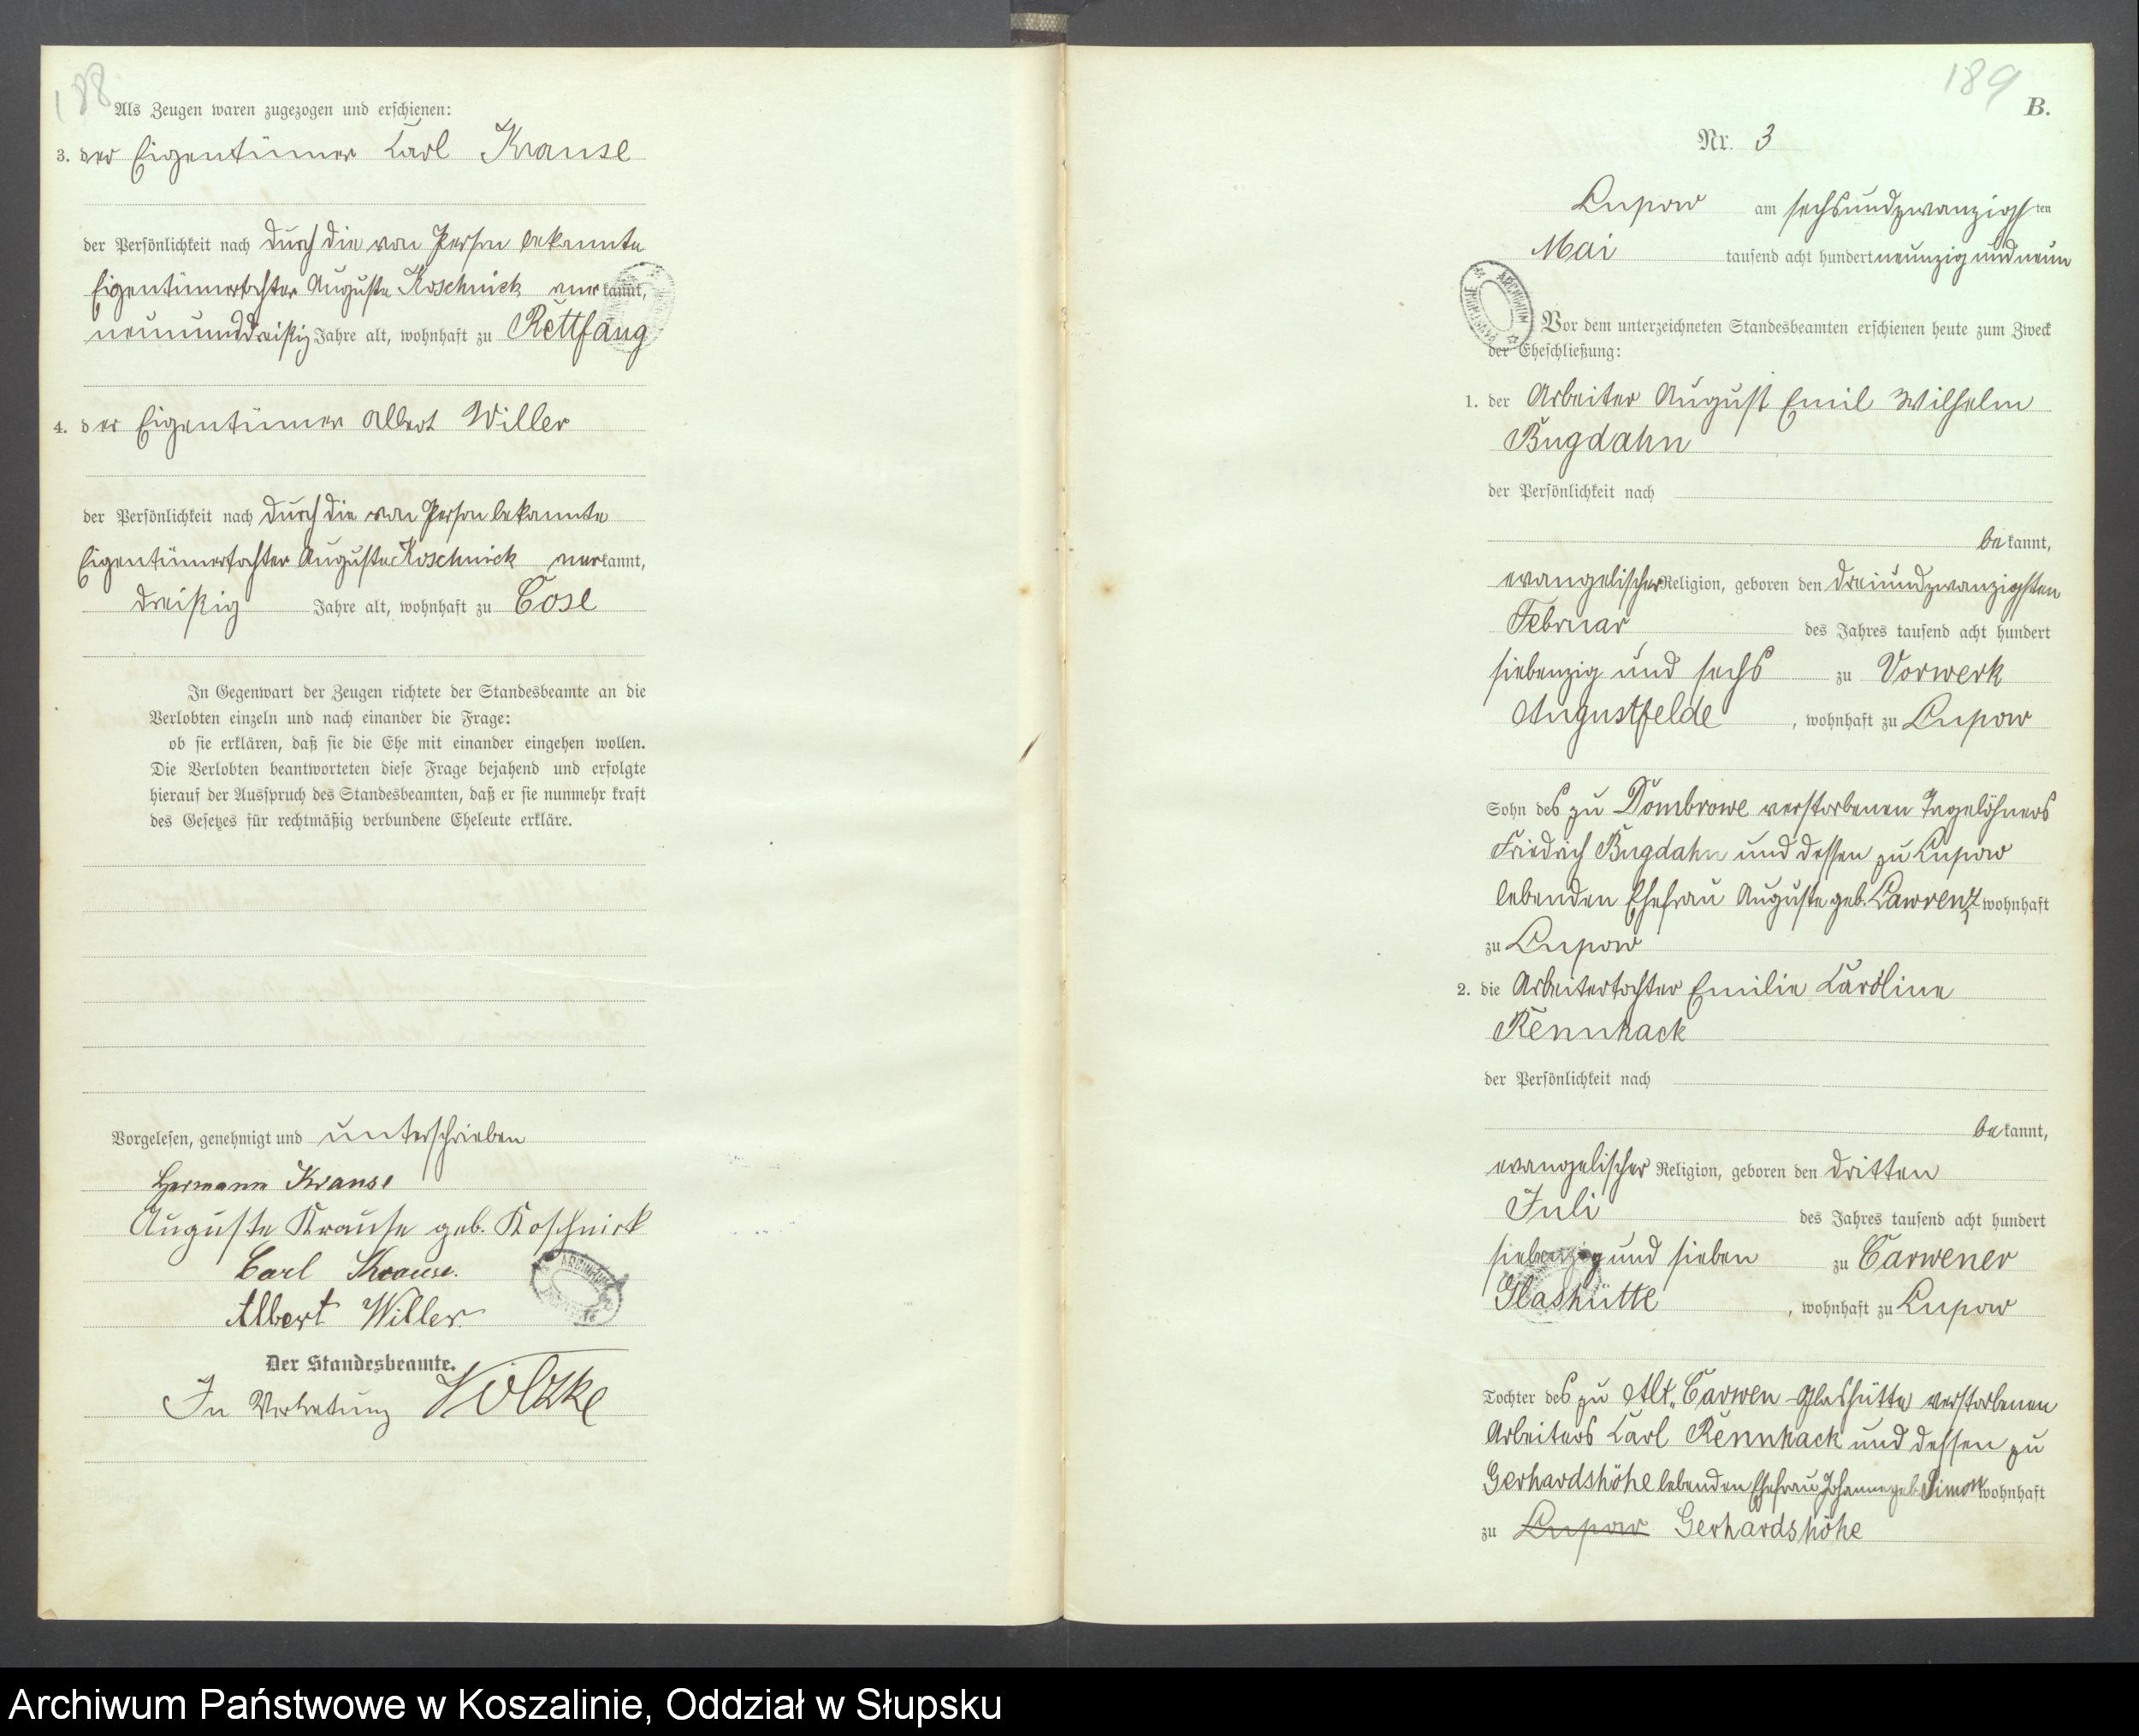 188
Als Zeugen waren zugezogen und erschienen:
3. der Eigentümer Carl Krause
der Persönlichkeit nach durch die von Person bekannte
Eigentümertochter Auguste Koschnick anerkannt,
neununddreißig Jahre alt, wohnhaft zu Rottfang
4. der Eigentümer Albert Willer
der Persönlichkeit nach durch die von Person bekannte
Eigentümertochter Auguste Koschnick anerkannt,
dreißig Jahre alt, wohnhaft zu Cose
In Gegenwart der Zeugen richtete der Standesbeamte an die
Verlobten einzeln und nach einander die Frage:
ob sie erklären, daß sie die Ehe mit einander eingehen wollen.
Die Verlobten beantworteten diese Frage bejahend und erfolgte
hierauf der Ausspruch des Standesbeamten, daß er sie nunmehr kraft
des Gesetzes für rechtmäßig verbundene Eheleute erkläre.
Vorgelesen, genehmigt und unterschrieben
Hermann Krause
Auguste Krause geb. Koschnick
Carl Krause.
Albert Willer
Der Standesbeamte.
In Vertretung Völzke
189
B.
Nr. 3
Lupow am sechsundzwanzigsten
Mai tausend acht hundert neunzig und neun
Vor dem unterzeichneten Standesbeamten erschienen heute zum Zweck
der Eheschließung:
1. der Arbeiter August Emil Wilhelm
Bugdahn
der Persönlichkeit nach
bekannt,
evangelischer Religion, geboren den dreiundzwanzigsten
Februar des Jahres tausend acht hundert
siebenzig und sechs zu Vorwerk
Augustfelde, wohnhaft zu Lupow
Sohn des zu Dombrowe verstorbenen Tagelöhners
Friedrich Bugdahn und dessen zu Lupow
lebenden Ehefrau Auguste geb. Lawrenz wohnhaft
zu Lupow
2. die Arbeitertochter Emilie Caroline
Rennhack
der Persönlichkeit nach
bekannt,
evangelischer Religion, geboren den dritten
Juli des Jahres tausend acht hundert
siebenzig und sieben zu Carwener
Glashütte, wohnhaft zu Lupow
Tochter des zu Alt-Carwen-Glashütte verstorbenen
Arbeiters Carl Rennhack und dessen zu
Gerhardshöhe lebenden Ehefrau Johanne geb. Simon wohnhaft
zu Lupow Gerhardshöhe
Archiwum Państwowe w Koszalinie, Oddział w Słupsku